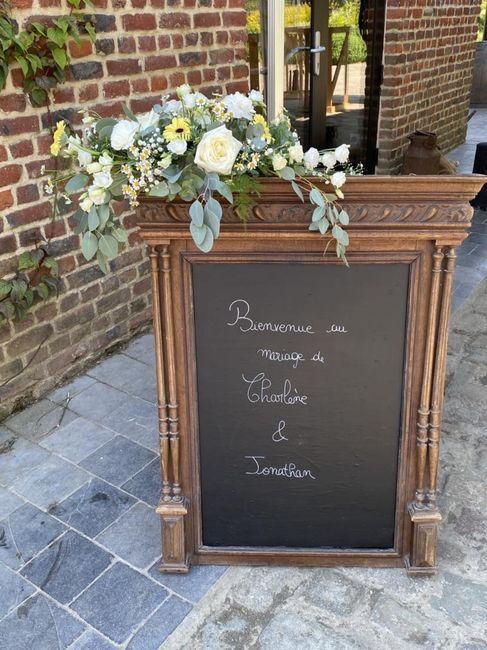 Bienvenue au
mariage de
Charlène
&
Jonathan